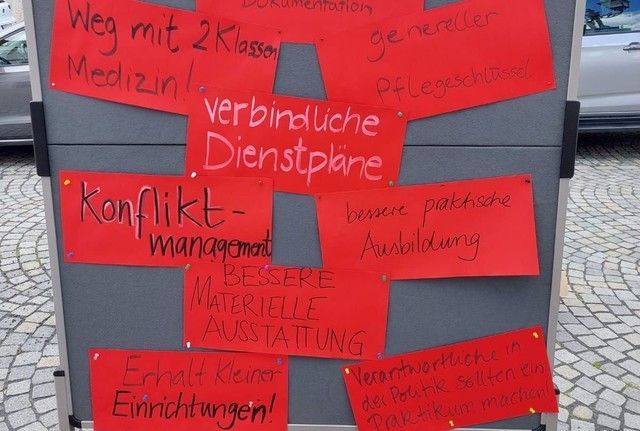 Dokumentation
Weg mit 2 Klassen
Medizin!
genereller
Pflegeschlüssel
verbindliche
Dienstpläne
Konflikt-
management
bessere praktische
Ausbildung
BESSERE
MATERIELLE
AUSSTATTUNG
Erhalt Kleiner
Einrichtungen!
Verantwortliche in
der Politik sollten ein
Praktikum machen!